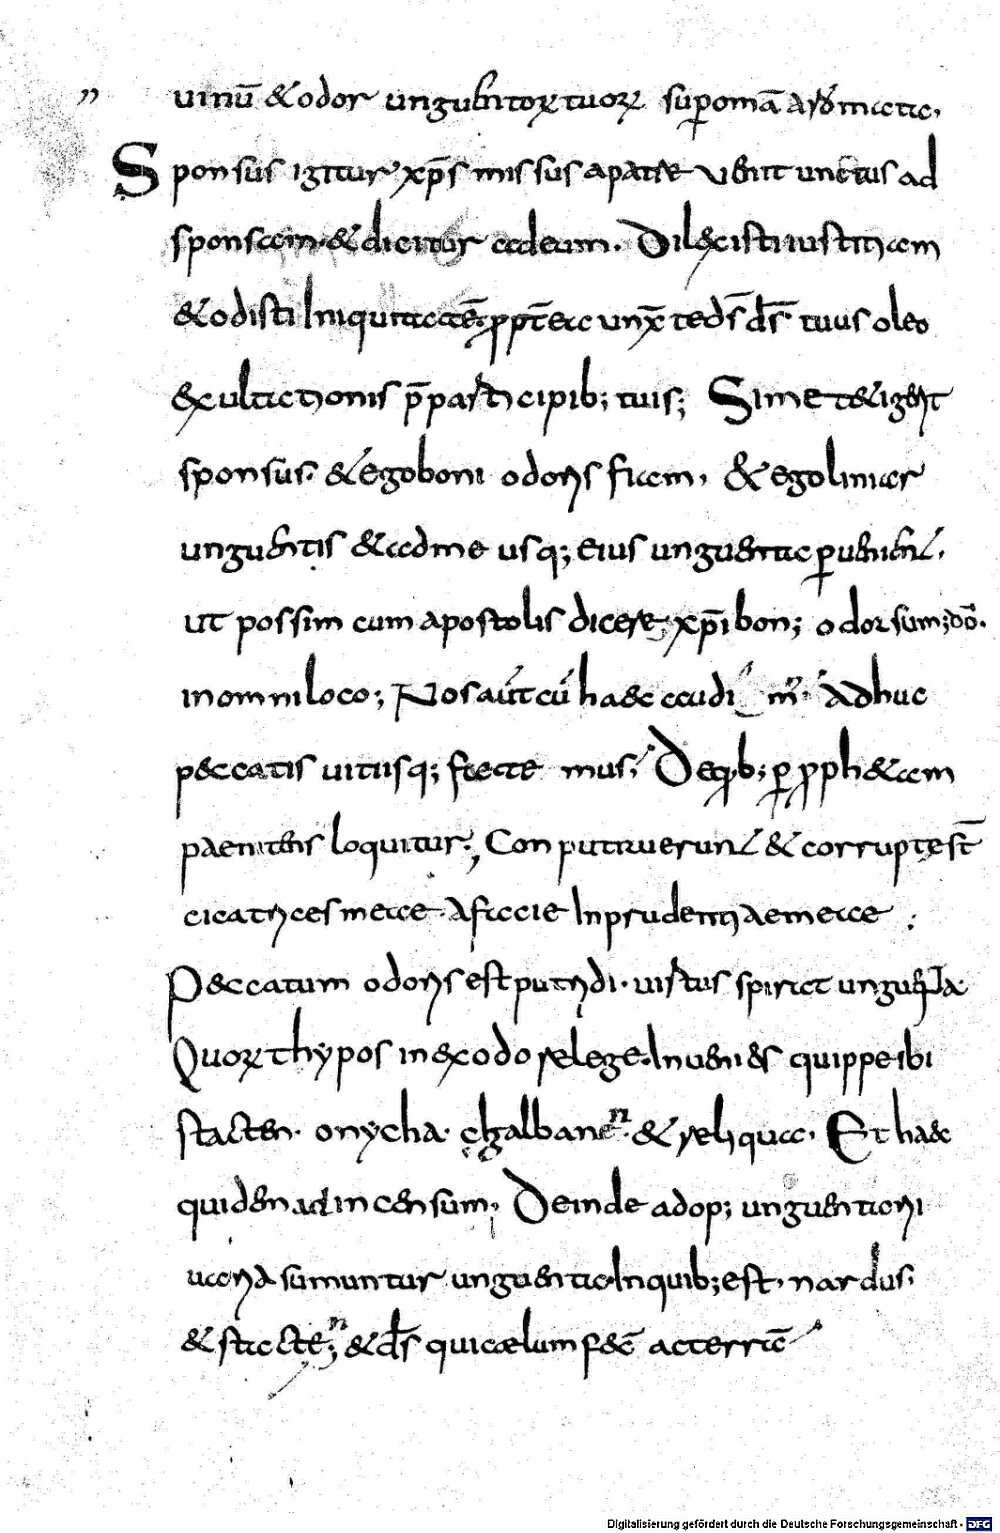 uinū & odor unguentoꝝ tuoꝝ sup omā aromata,
Sponsus igitur xp̄s missus apatre uenit unctus ad
sponsam. & dicitur ad eum. Dilexisti iustitiam
& odisti Iniquitatē. ꝓpt̄ea unx̄ te d̄s d̄s tuus oleo
exultationis p̄ participib; tuis; Si me tetigerit
sponsus. & ego boni odoris fiam, & ego linar
unguentis & ad me usq; eius unguenta ꝑuenient.
ut possim cum apostolis dicere, xp̄i bon; odor sum; dō.
in omni loco; Nos aūt cū haec audim'. Adhuc
peccatis uitiisq; faetemus; De qb; ꝑ ꝓph&am
paenitens loquitur; Conputruerunt & corrupte st̄
cicatrices meae. A facie Inprudentiae meae;
Peccatum odoris est putridi. uirtus spirat unguenta.
Quoꝝ thypos in exodo relege. Inuenies quippe ibi
stacten. onycha. chalbanen. & reliqua. Et haec
quidem ad incensum, Deinde ad op; unguentarii
uaria sumuntur unguenta. In quib; est. nardus.
& stacten; & d̄s qui caelum fec̄ ac terrā
Digitalisierung gefördert durch die Deutsche Forschungsgemeinschaft - DFG